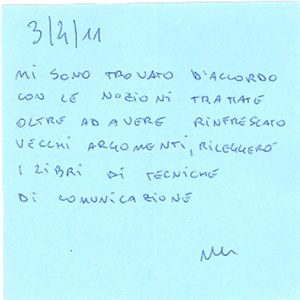 3/2/11
MI SONO TROVATO D'ACCORDO
CON LE NOZIONI TRATTATE
OLTRE AD AVERE RINFRESCATO
VECCHI ARGOMENTI, RILEGGERÒ
I LIBRI DI TECNICHE
DI COMUNICAZIONE